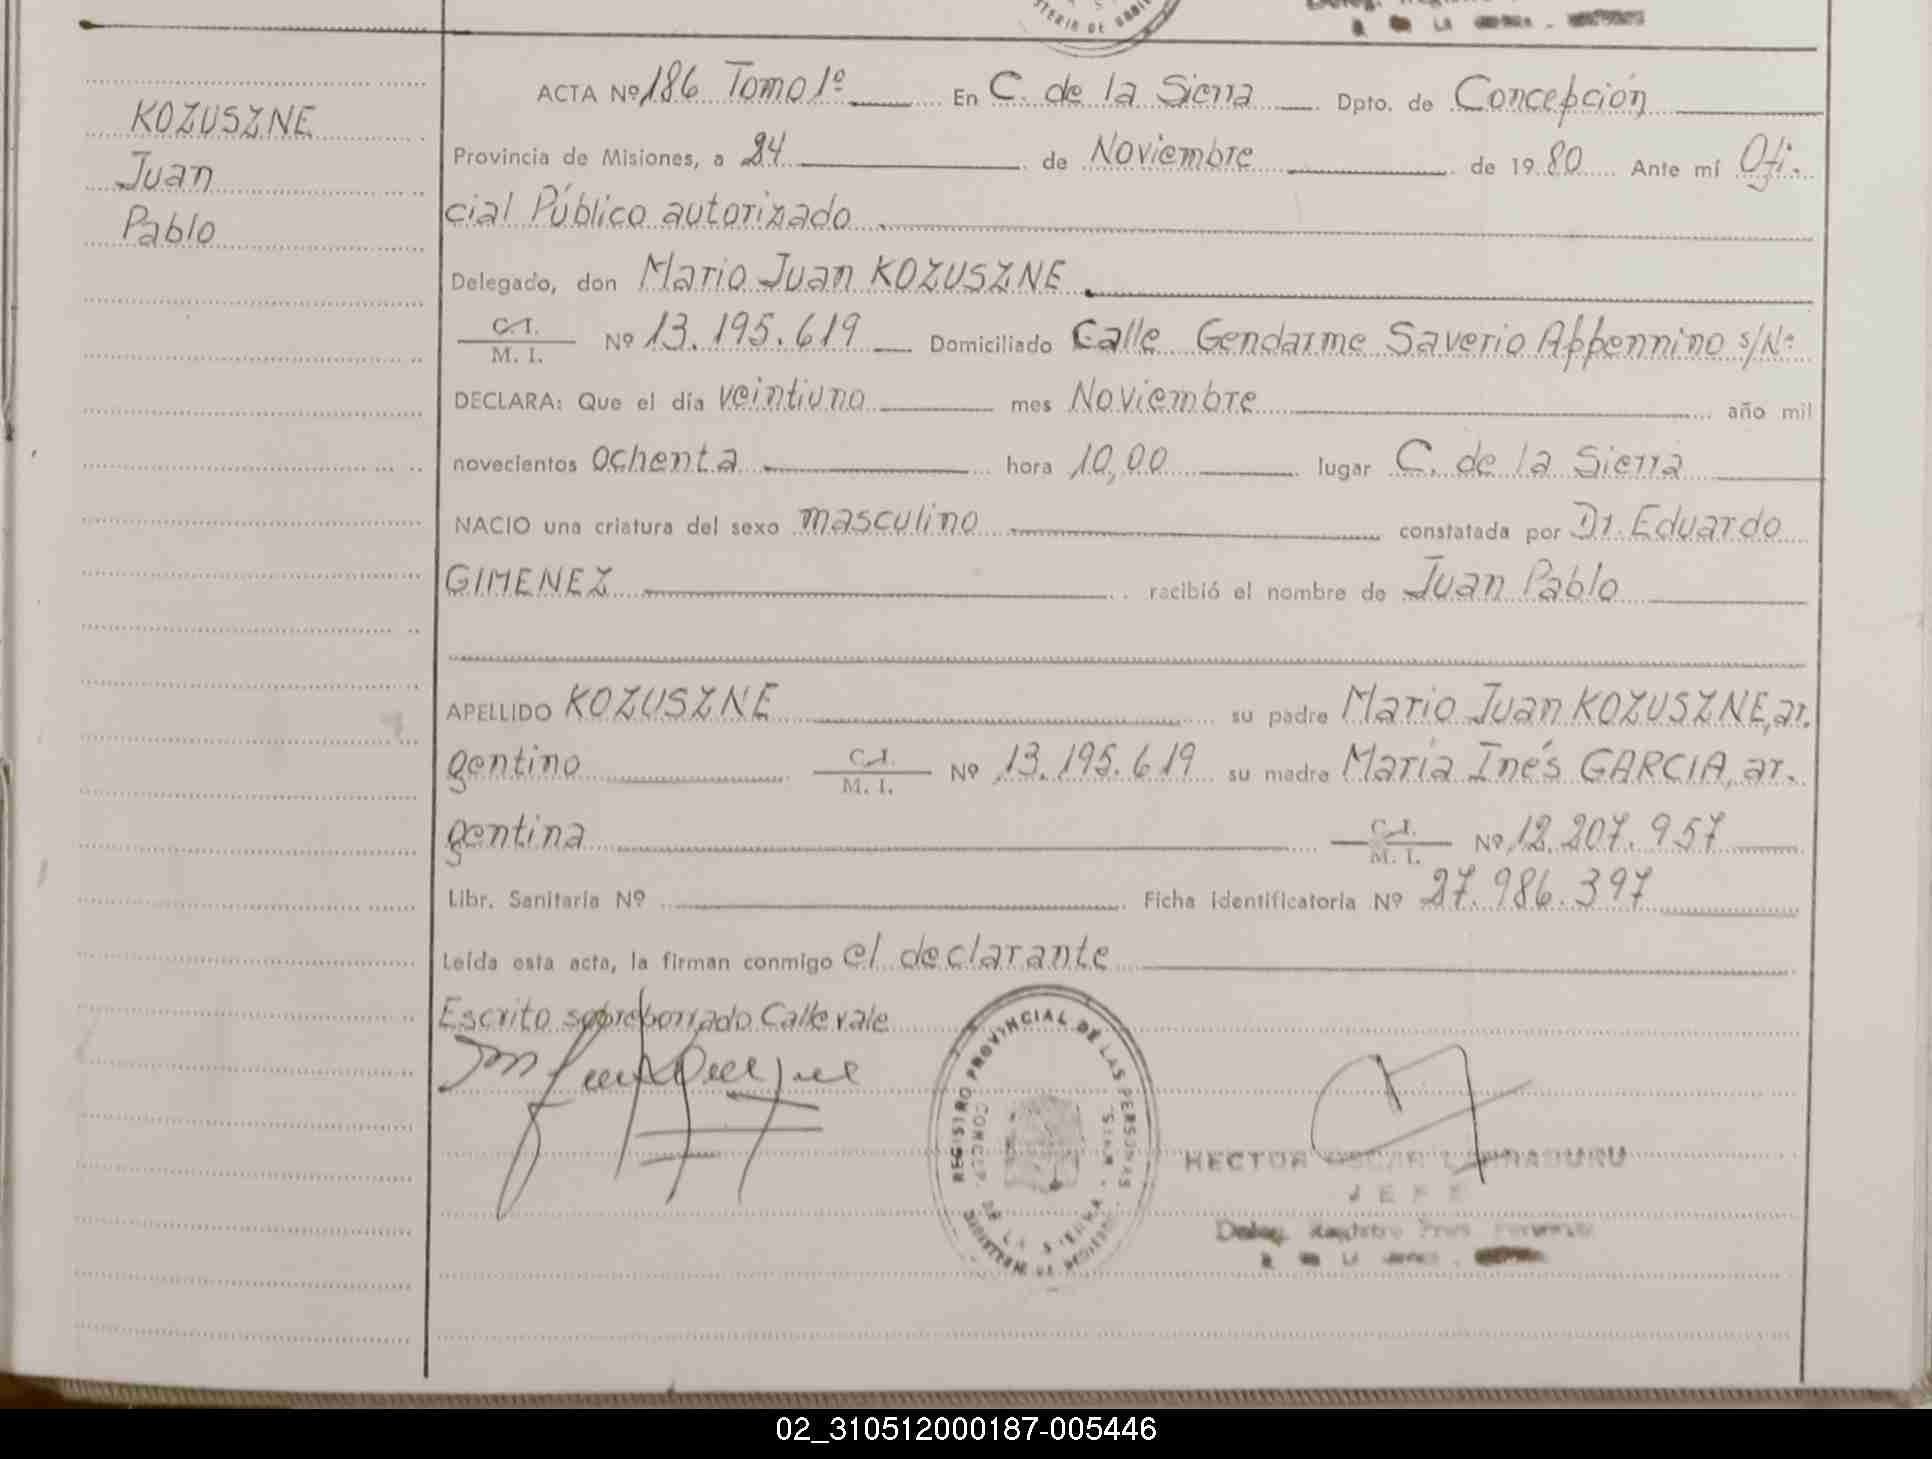 KOZUSZNE
Juan
Pablo
ACTA Nº 186 Tomo 1º En C. de la Sierra Dpto. de Concepción
Provincia de Misiones, a 24 de Noviembre de 1980 Ante mí Ofi.
cial Público autorizado
Delegado, don Mario Juan KOZUSZNE
C.I.
M. I. Nº 13.195.619 Domiciliado Calle Gendarme Saverio Appennino s/Nº
DECLARA: Que el día veintiuno mes Noviembre año mil
novecientos ochenta hora 10,00 lugar C. de la Sierra
NACIO una criatura del sexo masculino constatada por Dr. Eduardo
GIMENEZ recibió el nombre de Juan Pablo
APELLIDO KOZUSZNE su padre Mario Juan KOZUSZNE, ar.
gentino C.I. M. I. Nº 13.195.619 su madre María Inés GARCIA, ar.
gentina C.I. M. I. Nº 12.207.957
Libr. Sanitaria Nº Ficha identificatoria Nº 27.986.397
Leída esta acta, la firman conmigo el declarante
Escrito sobreborrado Calle vale
REGISTRO PROVINCIAL DE LAS PERSONAS
DE LA SIERRA
HECTOR OSCAR
JEFE
Deleg. Registro Prov.
02_310512000187-005446